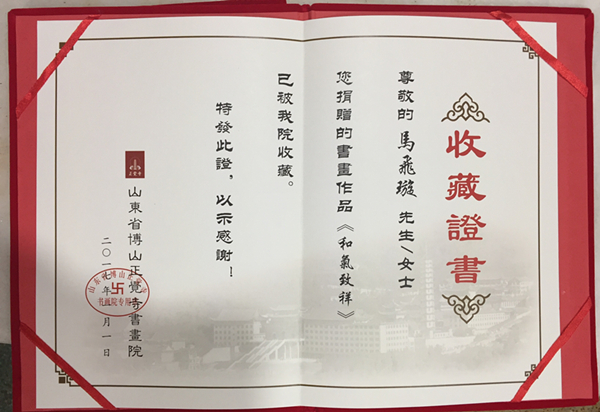 收藏證書
尊敬的 馬飛璇 先生/女士
您捐贈的書畫作品《和氣致祥》
已被我院收藏。
特發此證，以示感謝！
山東省博山正覺寺書畫院
二〇一七年 月一日
书画院专用